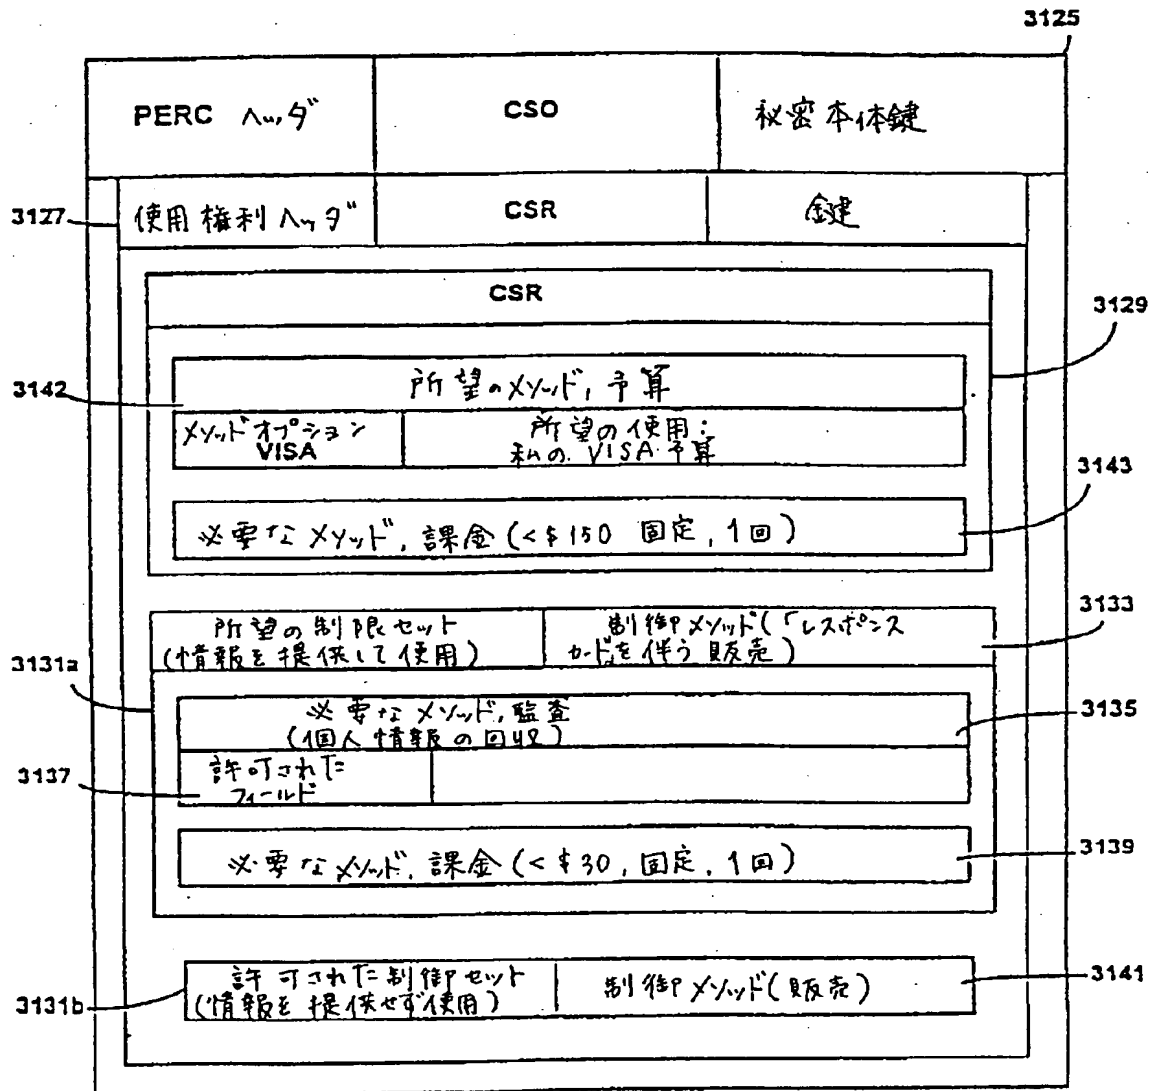 3125
PERC ヘッダ CSO 秘密本体鍵
3127 使用権利ヘッダ CSR 鍵
CSR
3129
所望のメソッド, 予算
3142
メソッドオプション
VISA
所望の使用:
私の VISA 予算
3143
必要なメソッド, 課金 (<$150 固定, 1回)
3133
所望の制限セット
(情報を提供して使用)
制御メソッド(「レスポンス
カード」を伴う販売)
3131a
必要なメソッド, 監査
(個人情報の回収)
3135
3137
許可された
フィールド
必要なメソッド, 課金 (<$30, 固定, 1回)
3139
許可された制御セット
(情報を提供せず使用)
制御メソッド(販売)
3141
3131b